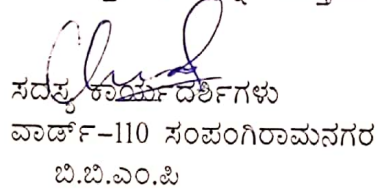 ಸದಸ್ಯ ಕಾರ್ಯದರ್ಶಿಗಳು
ವಾರ್ಡ್-110 ಸಂಪಂಗಿರಾಮನಗರ
ಬಿ.ಬಿ.ಎಂ.ಪಿ